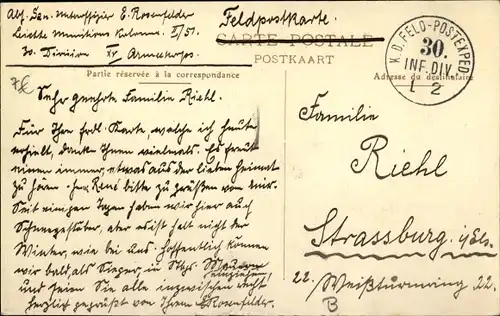 Abs. San. Unteroffizier E. Rosenfelder
Leichte Munitions Kolonne I/51.
30. Division XV Armeekorps.
Feldpostkarte.
CARTE POSTALE
POSTKAART
K.D. FELD-POSTEXPED.
30.
INF. DIV.
1 2
Partie réservée à la correspondance
Adresse du destinataire
Sehr geehrte Familie Riehl.
Für Ihre frdl. Karte, welche ich heute
erhielt, danke Ihnen vielmals. Es freut
einen immer, etwas aus der lieben Heimat
zu hören. Hr. René bitte zu grüßen von mir.
Seit einigen Tagen haben wir hier auch
Schneegestöber, aber es ist halt nicht der
Winter, wie bei Uns. Hoffentlich können
wir bald als Sieger, in Stbgs. Mauern
einziehen,
und seien Sie alle inzwischen recht
herzlich gegrüßt von Ihrem E. Rosenfelder.
Familie
Riehl
Strassburg. i/Els.
22. Weißturmring 22.
B